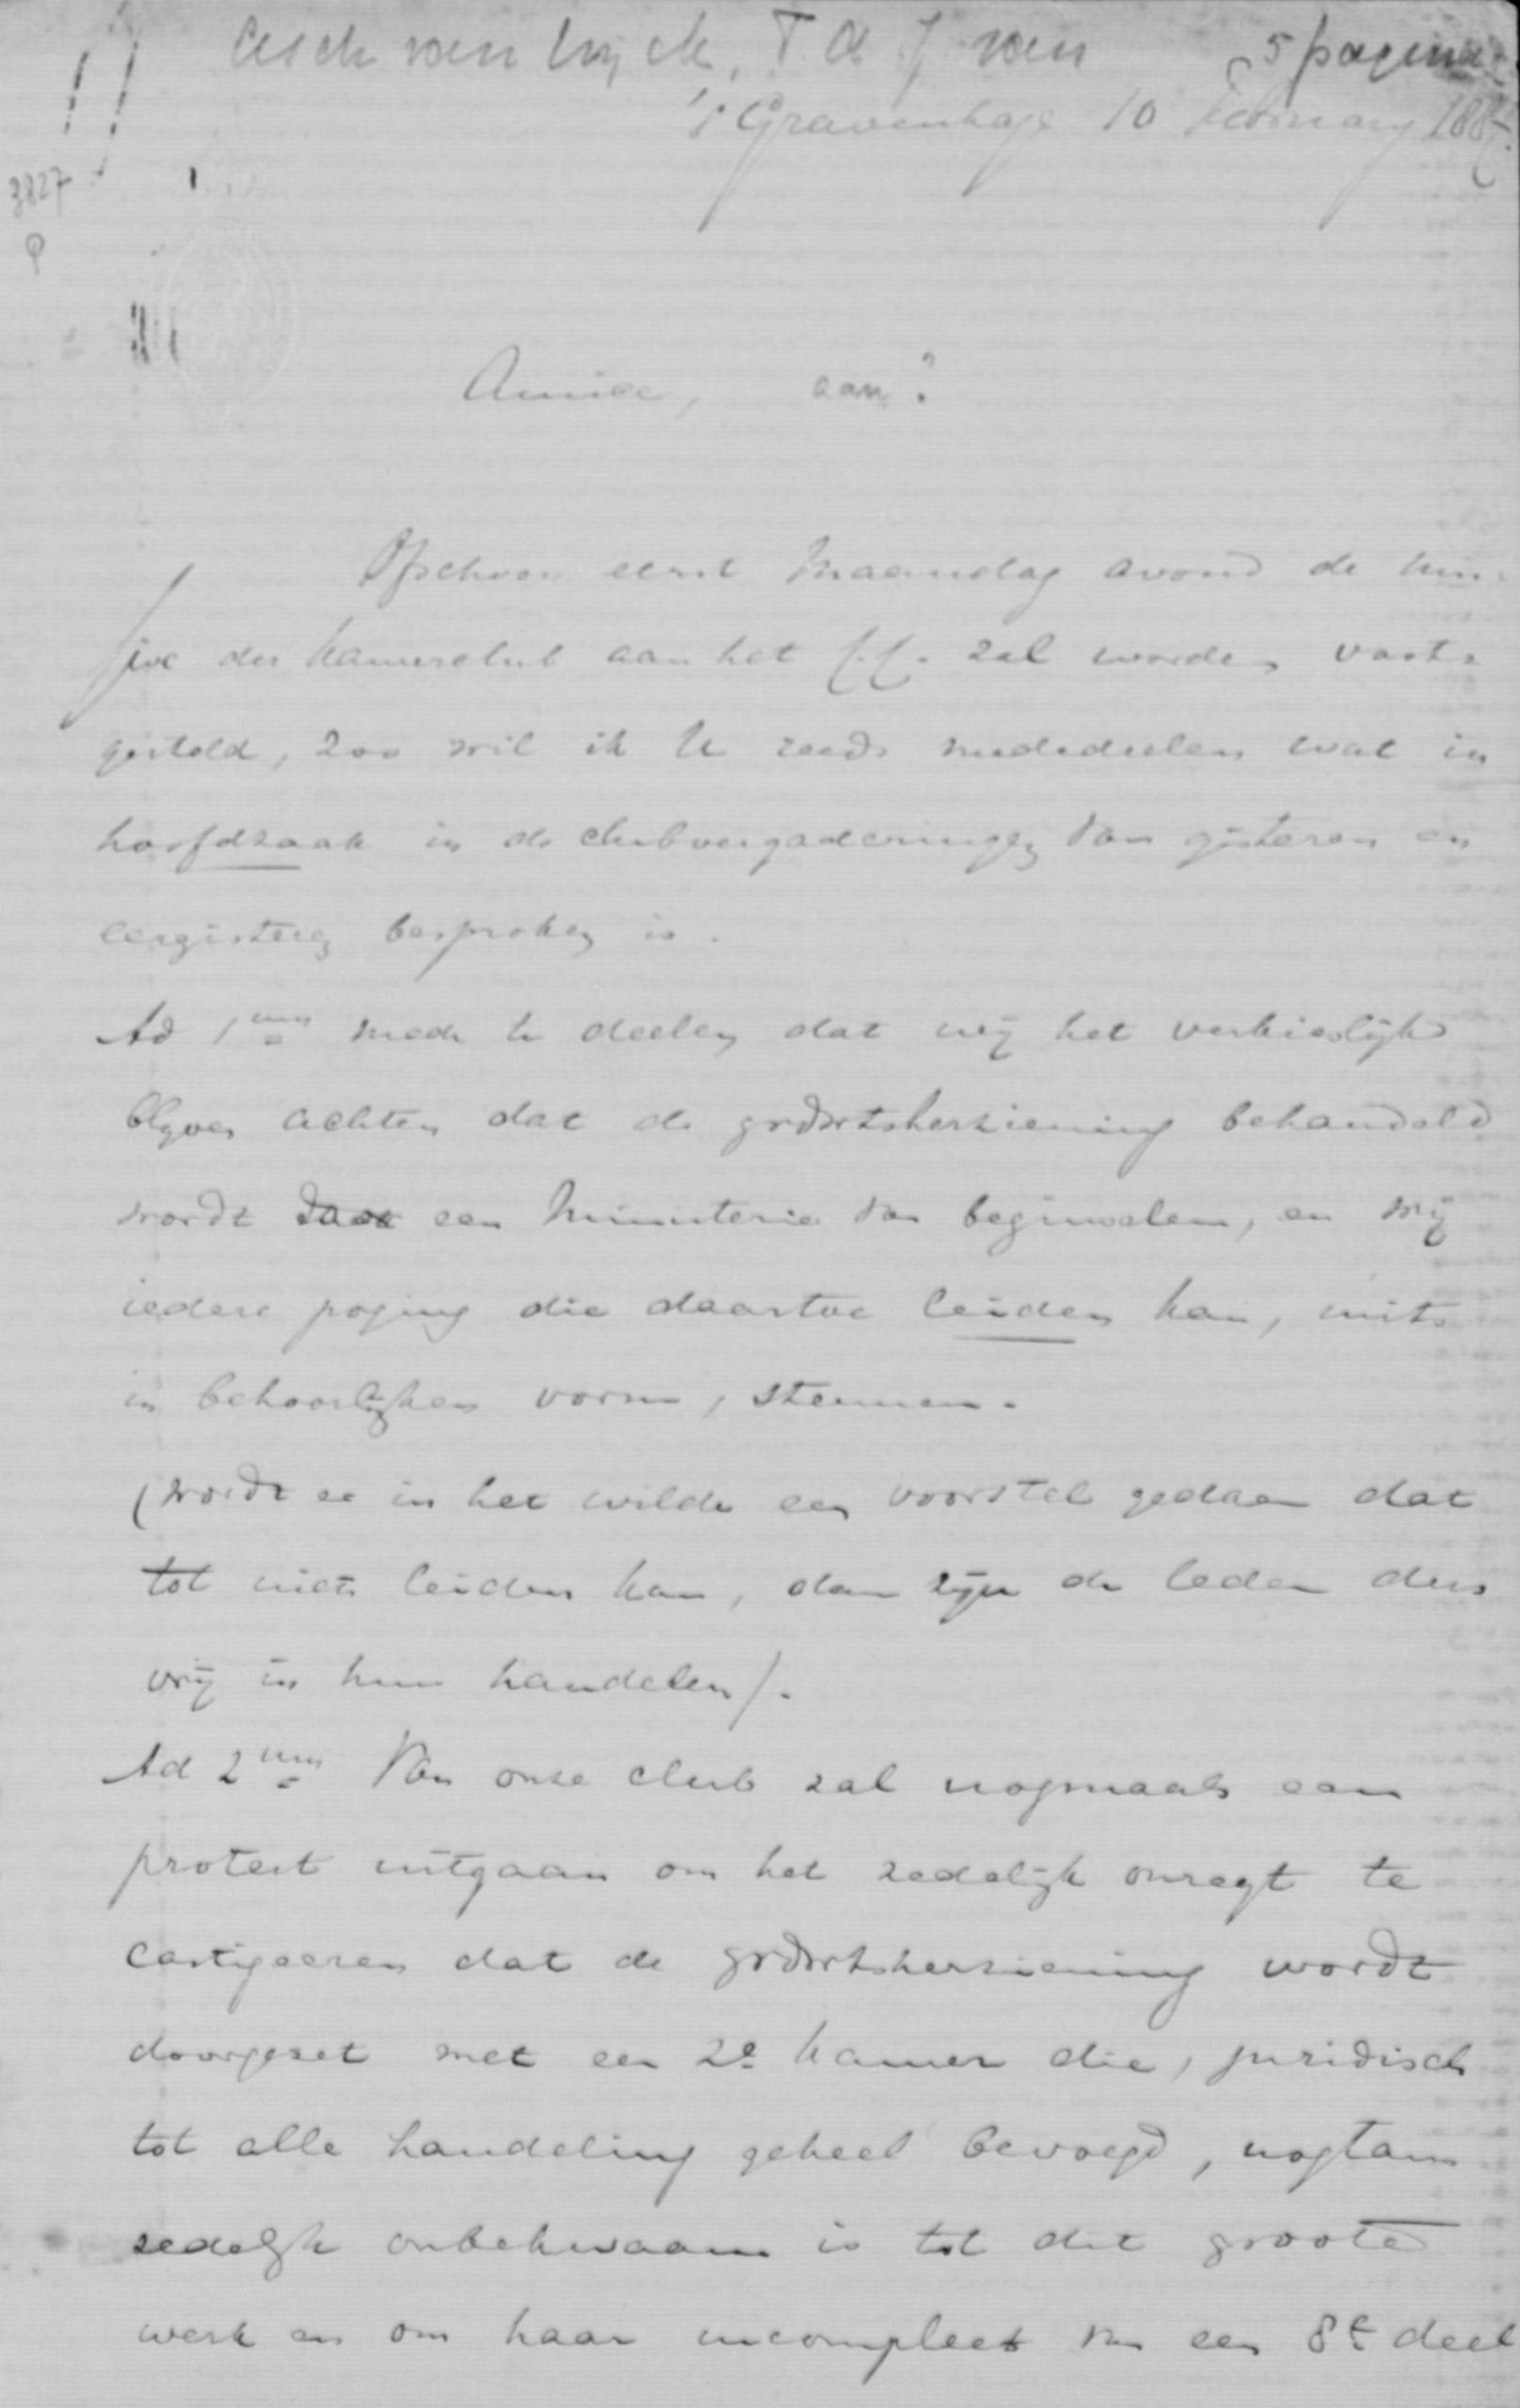 Asch van Wijck, T A J van 5 pagina's
's Gravenhage 10 February 188
3827
Amice, aan?
Ofschoon eerst Maandag avond de mis-
sive der kamerclub aan het C.C. zal worden vast-
gesteld, zoo wil ik U reeds mededeelen wat in
hoofdzaak in de clubvergaderingen van gisteren en
eergisteren besproken is.
Ad 1um mede te deelen dat wij het verkieslijk
blijven achten dat de grdwtsherziening behandeld
wordt door een Ministerie van beginselen, en wij
iedere poging die daartoe leiden kan, mits
in behoorlijken vorm, steunen.
(wordt er in het wilde een voorstel gedaan dat
tot niets leiden kan, dan zijn de leden dus
vrij in hun handelen).
Ad 2um Van onze club zal nogmaals een
protest uitgaan om het zedelijk onregt te
castigeeren dat de grdwtsherziening wordt
doorgezet met een 2e kamer die, juridisch
tot alle handeling geheel bevoegd, nogtans
zedelijk onbekwaam is tot dit groote
werk en om haar incompleet van een 8e deel